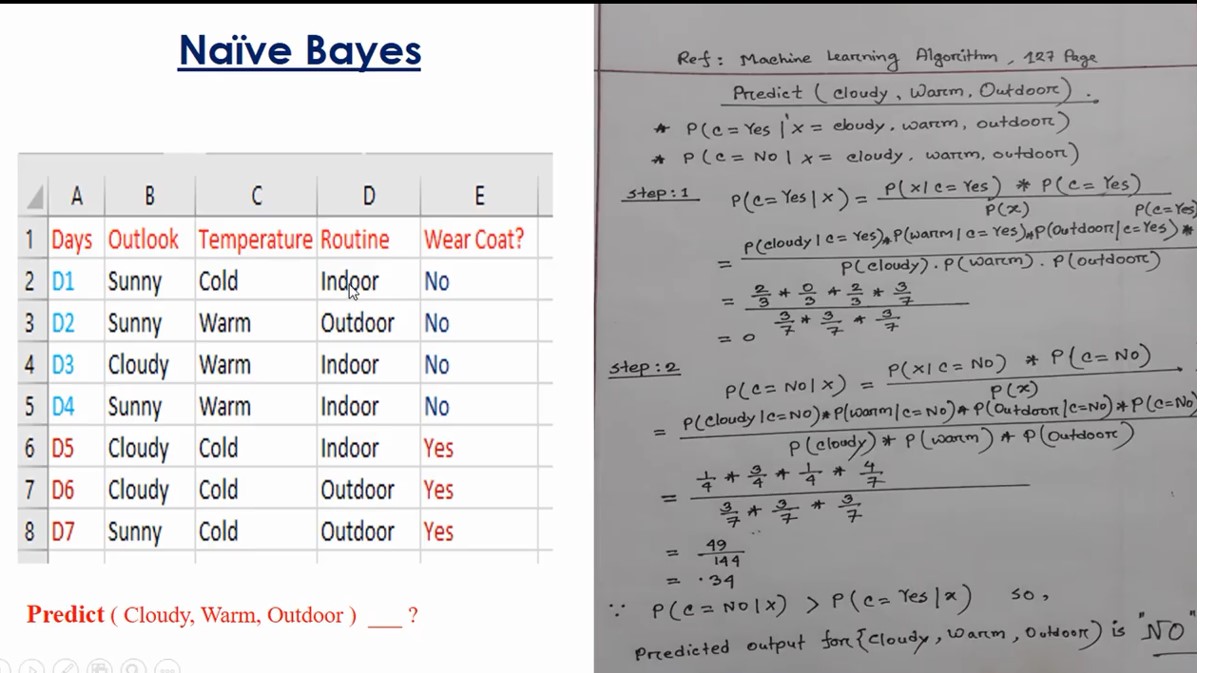 Naïve Bayes
A B C D E
1 Days Outlook Temperature Routine Wear Coat?
2 D1 Sunny Cold Indoor No
3 D2 Sunny Warm Outdoor No
4 D3 Cloudy Warm Indoor No
5 D4 Sunny Warm Indoor No
6 D5 Cloudy Cold Indoor Yes
7 D6 Cloudy Cold Outdoor Yes
8 D7 Sunny Cold Outdoor Yes
Predict ( Cloudy, Warm, Outdoor ) ___ ?
Ref: Machine Learning Algorithm, 127 Page
Predict ( cloudy, Warm, Outdoor ).
* P(c=Yes | x = cloudy, warm, outdoor)
* P(c = No | x = cloudy, warm, outdoor)
step:1 P(c=Yes | x) = P(x | c=Yes) * P(c=Yes) / P(x)
P(c=Yes)
= P(cloudy | c=Yes) * P(warm | c=Yes) * P(Outdoor | c=Yes) * / P(cloudy) . P(warm) . P(outdoor)
= 2/3 * 0/3 * 2/3 * 3/7 / 3/7 * 3/7 * 3/7
= 0
step:2
P(c=No | x) = P(x | c=No) * P(c=No) / P(x)
= P(cloudy | c=No) * P(warm | c=No) * P(Outdoor | c=No) * P(c=No) / P(cloudy) * P(warm) * P(Outdoor)
= 1/4 * 3/4 * 1/4 * 4/7 / 3/7 * 3/7 * 3/7
= 49/144
= .34
∵ P(c=No | x) > P(c=Yes | x) so,
Predicted output for {cloudy, warm, Outdoor) is "NO"